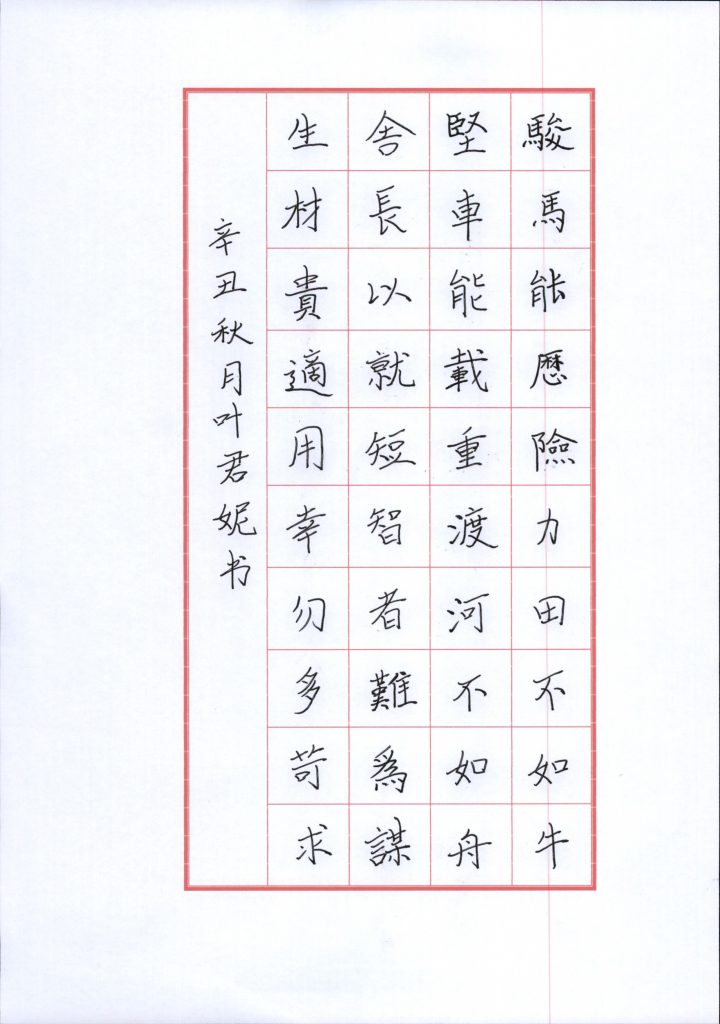 駿馬能歷險力田不如牛
堅車能載重渡河不如舟
舍長以就短智者難為謀
生材貴適用幸勿多苛求
辛丑秋月叶君妮书